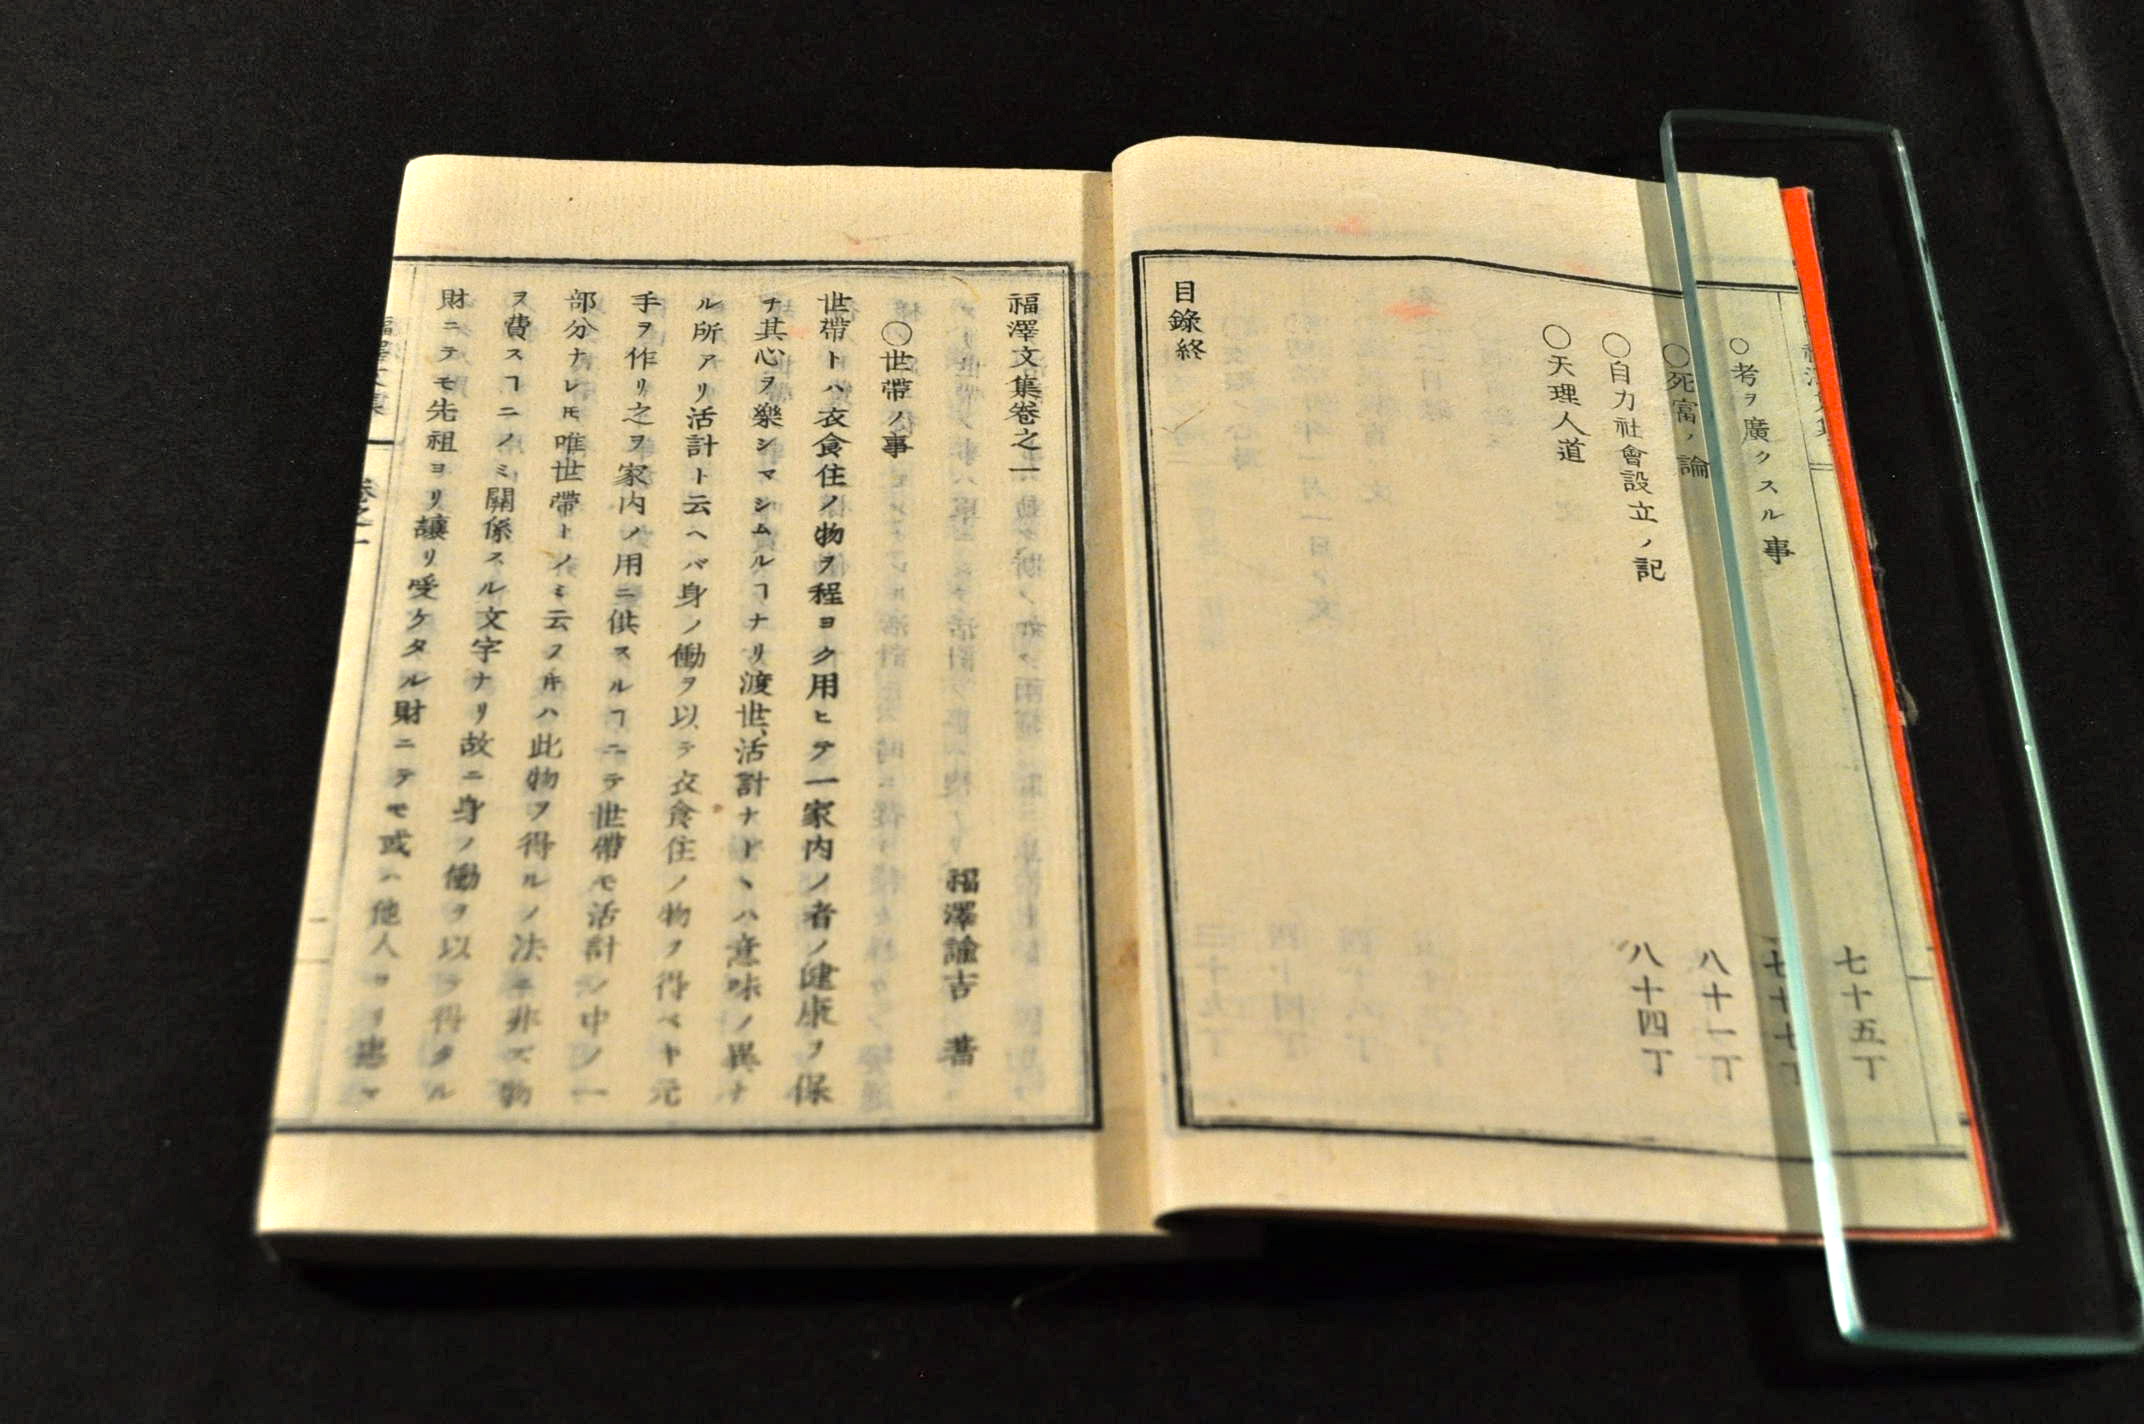 ○考ヲ廣クスル事 七十五丁
○死富ノ論 七十七丁
○自力社會設立ノ記 八十一丁
○天理人道 八十四丁
目錄終
福澤文集卷之一
福澤諭吉 著
○世帶ノ事
世帶トハ衣食住ノ物ヲ程ヨク用ヒテ一家内ノ者ノ健康ヲ保
チ其心ヲ樂シマシムルヿナリ渡世、活計ナドヽハ意味ノ異ナ
ル所アリ活計ト云ヘバ身ノ働ヲ以テ衣食住ノ物ヲ得ベキ元
手ヲ作リ之ヲ家内ノ用ニ供スルヿニテ世帶モ活計ノ中ノ一
部分ナレ𪜈唯世帶トノミ云フ𪜈ハ此物ヲ得ルノ法ニ非ズ物
ヲ費スヿニノミ關係スル文字ナリ故ニ身ノ働ヲ以テ得タル
財ニテモ先祖ヨリ讓リ受ケタル財ニテモ或ハ他人ヨリ惠マ